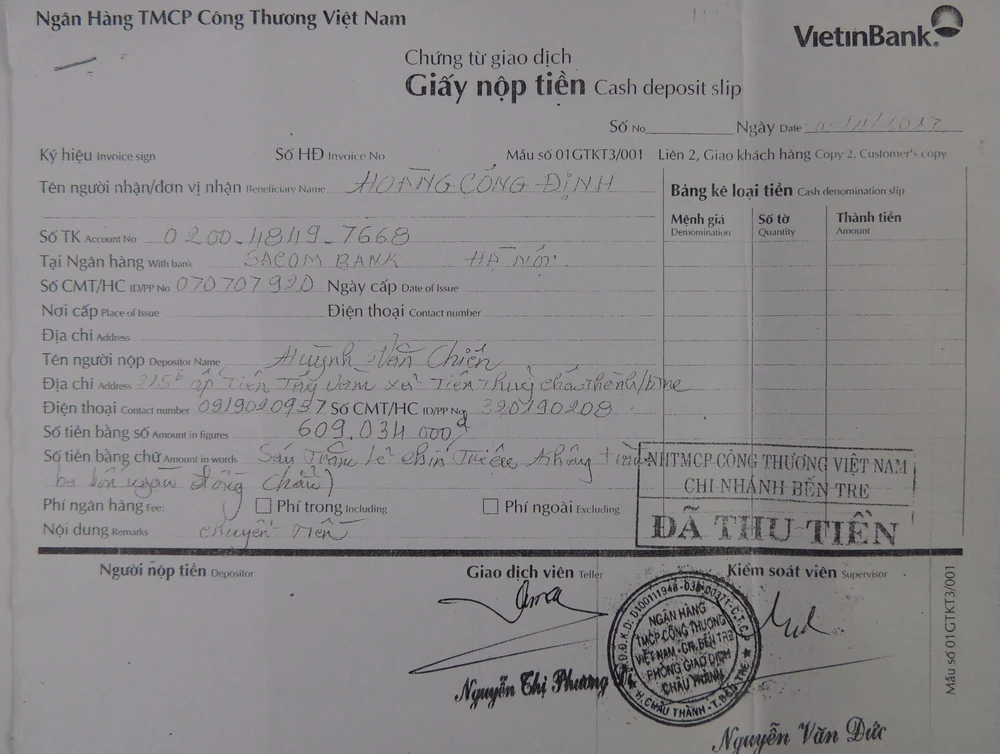 Ngân Hàng TMCP Công Thương Việt Nam
VietinBank
Chứng từ giao dịch
Giấy nộp tiền Cash deposit slip
Số No Ngày Date /11/2017
Ký hiệu Invoice sign Số HĐ Invoice No Mẫu số 01GTKT3/001 Liên 2, Giao khách hàng Copy 2, Customer's copy
Tên người nhận/đơn vị nhận Beneficiary Name HOÀNG CÔNG ĐỊNH
Số TK Account No 0200_4849_7668
Tại Ngân hàng With bank SACOM BANK HÀ NỘI
Số CMT/HC ID/PP No 070707920 Ngày cấp Date of Issue
Nơi cấp Place of Issue Điện thoại Contact number
Địa chỉ Address
Tên người nộp Depositor Name Huỳnh Văn Chiến
Địa chỉ Address ấp Tiên Tây Vàm xã Tiên Thủy Châu Thành/
Điện thoại Contact number 0919020957 Số CMT/HC ID/PP No 320190208
Số tiền bằng số Amount in figures 609.034.000đ
Số tiền bằng chữ Amount in words Sáu Trăm lẻ chín Triệu không trăm
ba bốn ngàn đồng chẵn)
Phí ngân hàng Fee: Phí trong Including Phí ngoài Excluding
Nội dung Remarks chuyển Tiền
Bảng kê loại tiền Cash denomination slip
Mệnh giá Số tờ Thành tiền
Denomination Quantity Amount
NHTMCP CÔNG THƯƠNG VIỆT NAM
CHI NHÁNH BẾN TRE
ĐÃ THU TIỀN
Người nộp tiền Depositor Giao dịch viên Teller Kiểm soát viên Supervisor
NGÂN HÀNG
TMCP CÔNG THƯƠNG
VIỆT NAM-CN.BẾN TRE
PHÒNG GIAO DỊCH
CHÂU THÀNH
H.CHÂU THÀNH-T.BẾN TRE
Nguyễn Thị Phương
Nguyễn Văn Đức
Mẫu số 01GTKT3/001